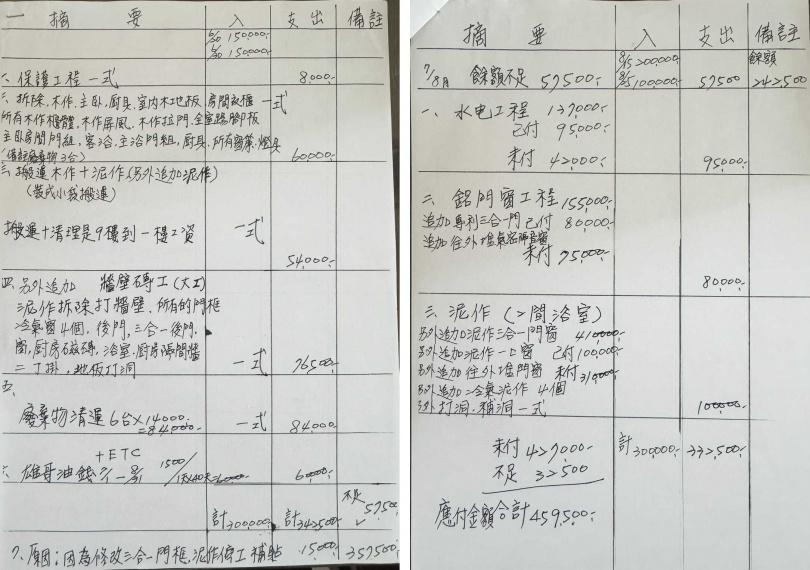 一 摘 要 入 支出 備註
6/30 150,000.-
6/30 150,000.-
八、保護工程 一式 8,000.-
二、拆除,木作,主臥,厨具,室内木地板,房間衣櫃 一式
所有木作櫃體,木作屏風,木作拉門,全室踢腳板
主臥房間門組,客浴,主浴門組,厨具,所有窗簾,燈具
(備註廢棄物3台) 60,000.-
三、搬運木作+泥作(另外追加泥作)
(裝成小袋搬運)
搬運+清理是9樓到一樓工資 一式
54,000.-
四、另外追加 牆壁磚工(大工)
泥作拆除打牆壁,所有的門框
冷氣窗4個,後門,三合一後門,
窗,厨房磁磚,浴室,厨房隔間牆
二丁掛,地板打洞 一式 76,500.-
五、
廢棄物清運6台×14,000.-
=84,000.- 一式 84,000.-
+ETC
六、雄哥油錢 1500/ 60,000.-
計300,000.- 計342,500.- 不足 57,500
7、原因:因為修改三合一門框,泥作停工補貼 15,000.- 357,500.-
摘 要 入 支出 備註
7/8月 餘額不足 57,500.- 8/5 200,000.- 8/5 100,000.- 57,500 餘額 242,500
一、水电工程 137,000.-
已付 95,000.-
未付 42,000.- 95,000.-
二、鋁門窗工程 155,000.-
追加專利三合一門 已付 80,000.-
追加往外堆氣密隔音窗
未付 75,000.-
80,000.-
三、泥作(2間浴室)
另外追加泥作三合一門窗 410,000.-
另外追加泥作一口窗 已付100,000.-
另外追加往外堆門窗 未付310,000.-
另外追加冷氣泥作 4個
另外打洞,補洞一式 100,000.-
未付 427,000.- 計300,000.- 332,500.-
不足 32,500
應付金額合計 459,500.-